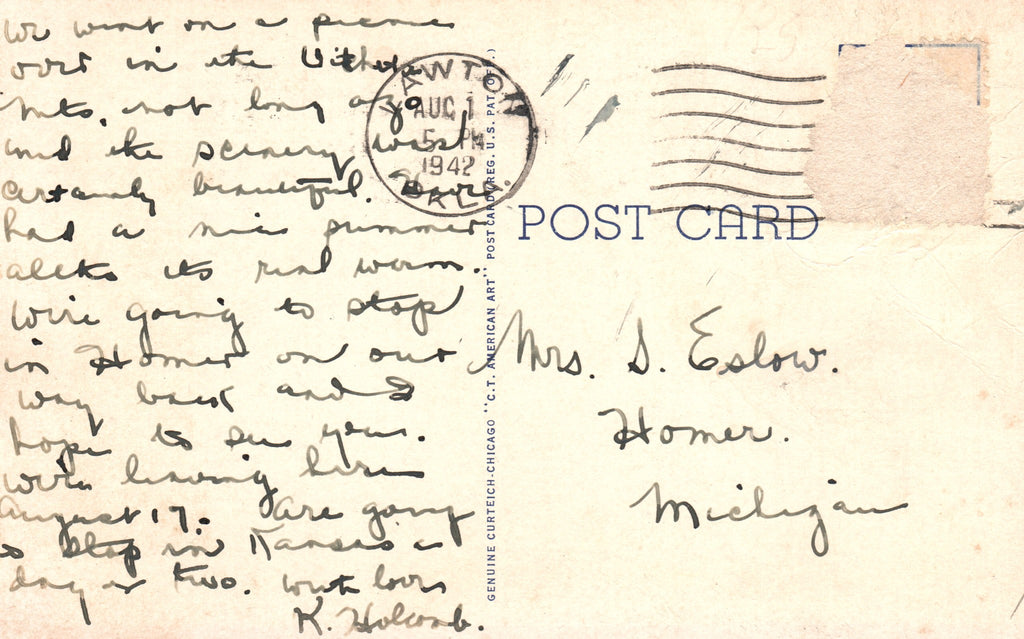 We went on a picnic
over in the Wichita
Mts. not long ago
and the scenery was
certainly beautiful. Have
had a nice summer
altho its real warm.
We're going to stop
in Homer on our
way back and
hope to see you.
We're leaving here
August 17. Are going
to stop in Kansas a
day or two. With love
K. Holcomb.
LAWTON
AUG 1
5 PM
1942
OKLA.
GENUINE CURTEICH-CHICAGO "C.T. AMERICAN ART" POST CARD (REG. U.S. PAT. OFF.)
POST CARD
Mrs. S. Eslow.
Homer.
Michigan